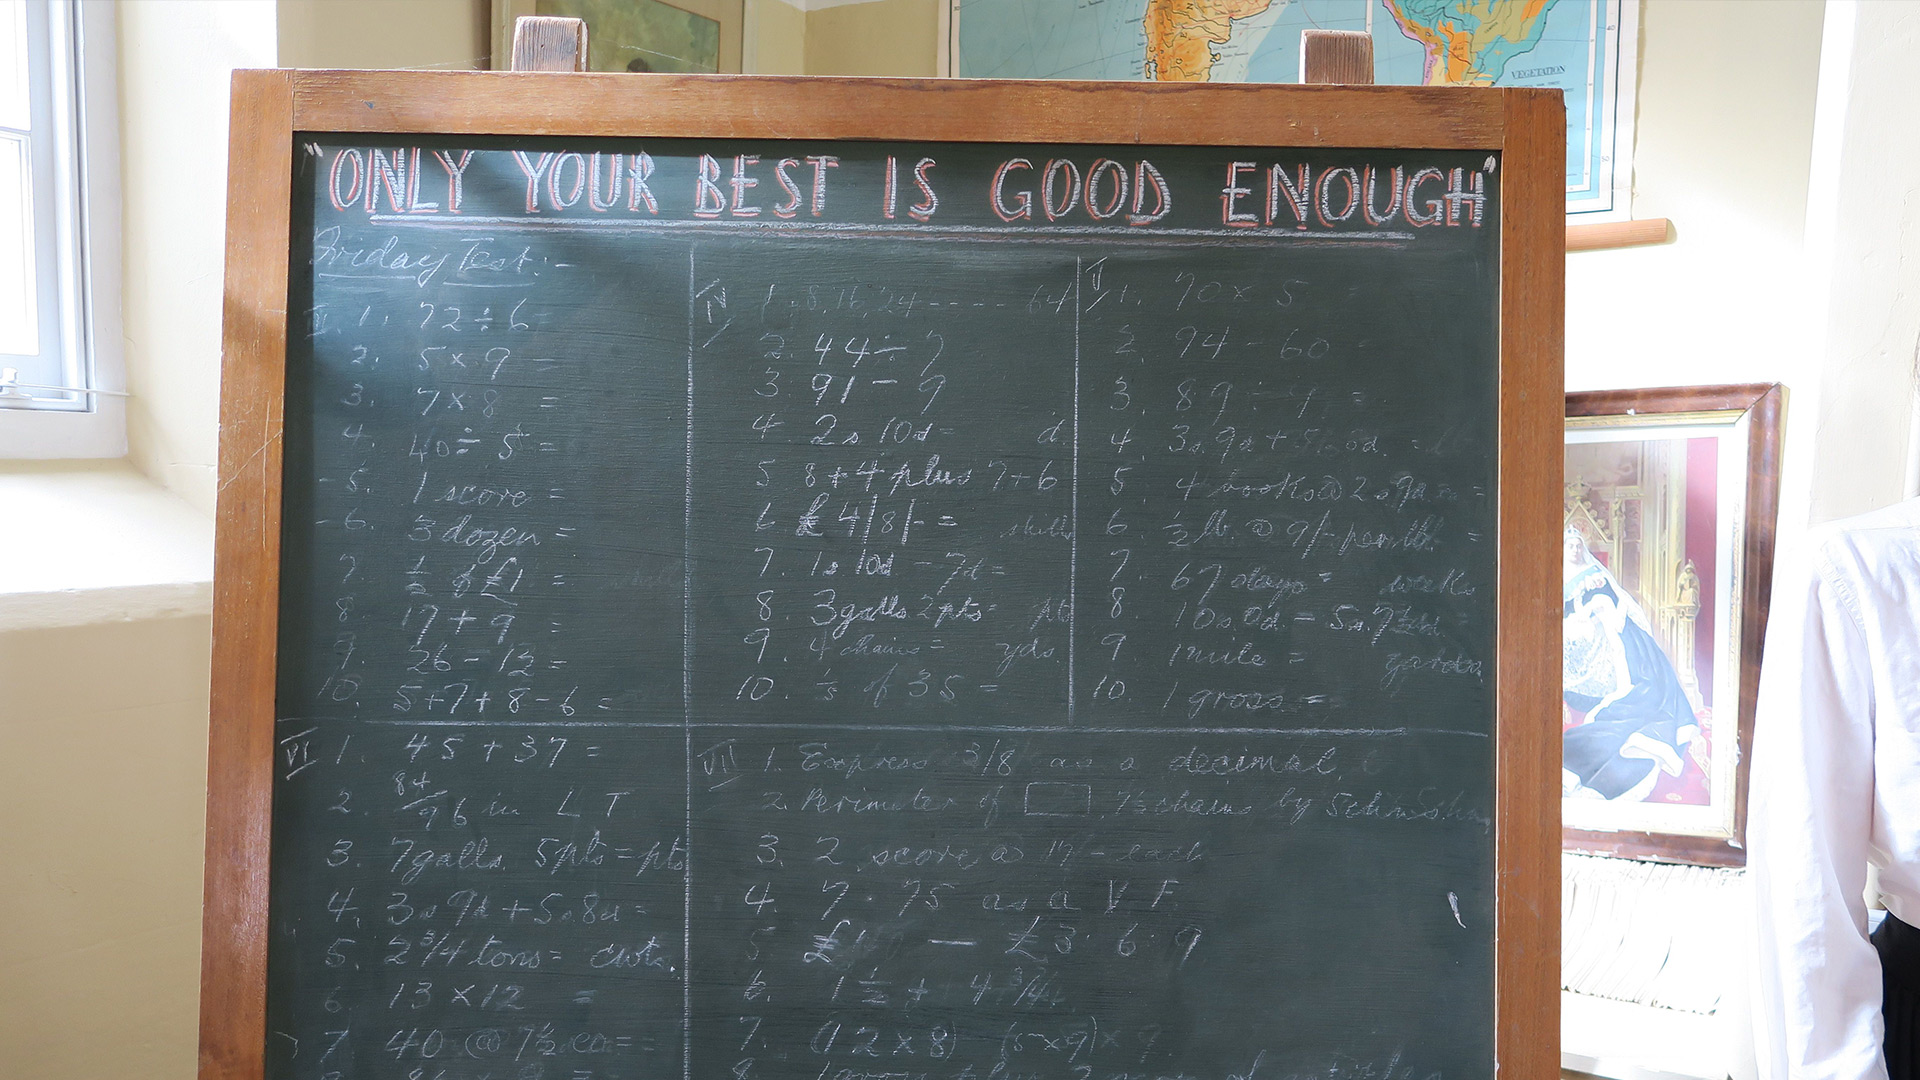 "ONLY YOUR BEST IS GOOD ENOUGH"
Friday Test:-
III. 1. 72 ÷ 6
2. 5 × 9 =
3. 7 × 8 =
4. 40 ÷ 5 =
5. 1 score =
6. 3 dozen =
7. 1/2 of £1 =
8. 17 + 9 =
9. 26 - 12 =
10. 5+7+8-6 =
IV 1. 8, 16, 24 ---- 64
2. 44 ÷ 7
3. 91 - 9
4. 2s 10d = d.
5 8+4 plus 7+6
6 £4/8/- =
7. 1s 10d - 7d =
8. 3galls 2pts = pts
9. 4 chains = yds.
10. of 35 =
V 1. 70 × 5 =
2. 94 - 60 =
3. 89 ÷ =
4. 3s. 9d + =
5. 4 books @ 2s 9d =
6. 1/2 lb. @ 9/- per lb. =
7. 67 days = weeks
8. 10s. 0d. - 5s. 7½d. =
9. 1 mile =
10. 1 gross =
VI 1. 45 + 37 =
2. 84/96 in L T
3. 7galls. 5pts = pts
4. 3s 9d + 5s. 8d =
5. 2 3/4 tons = cwts.
6. 13 × 12 =
7. 40 @ 7½ ea =
VII 1. Express 3/8 as a decimal.
2. Perimeter of chains by
3. 2 score @ each
4. 7.75 as a V F
5 £ — £3. 6. 9
6. 1 1/2 + 4 3/4
7. (12 × 8) (5×9) × 9
VEGETATION